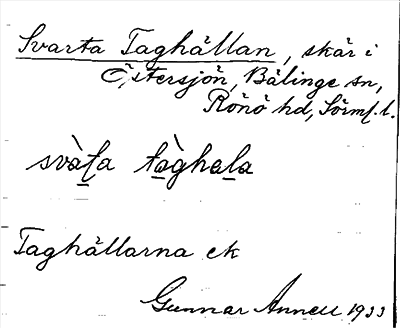 Svarta Taghällan, skär i
Östersjön, Bälinge sn,
Rönö hd, Sörml. l.
svàṯa tà̱ghaḻa
Taghällarna ek
Gunnar Annell 1933